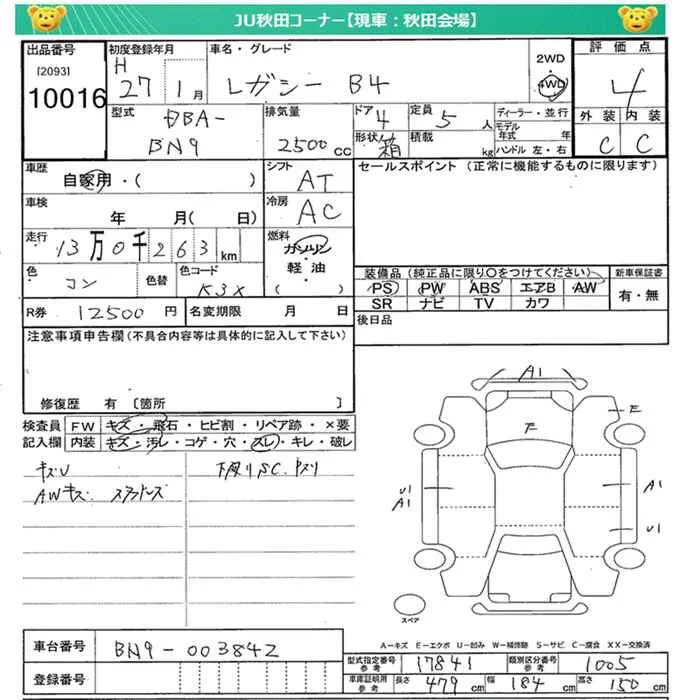 JU秋田コーナー【現車：秋田会場】
出品番号
[2093]
10016
初度登録年月
H 27 1月
車名・グレード
レガシー B4
2WD
4WD
評価点
4
外装 内装
C C
型式
DBA-
BN9
排気量
2500cc
ドア 4
形状 箱
定員 5人
積載 kg
ディーラー・並行
モデル年式 年
ハンドル 左・右
車歴
自家用・( )
シフト
AT
セールスポイント (正常に機能するものに限ります)
車検
年 月( 日)
冷房
AC
走行
13万0千263km
燃料
ガソリン
軽油
色
コン
色替
色コード
K3X
装備品(純正品に限り○をつけてください)
PS PW ABS エアB AW
SR ナビ TV カワ
新車保証書
有・無
R券 12500円
名変期限 月 日
後日品
注意事項申告欄(不具合内容等は具体的に記入して下さい)
修復歴 有〔箇所 〕
検査員記入欄
FW キズ・飛石・ヒビ割・リペア跡・×要
内装 キズ・汚レ・コゲ・穴・スレ・キレ・破レ
キズU
AWキズ
下廻りSC.
A1
F
E
U1
A1
A1
U1
スペア
A-キズ E-エクボ U-凹み W-補修跡 S-サビ C-腐食 XX-交換済
車台番号 BN9-003842
登録番号
型式指定番号参考 17841
類別区分番号参考 1005
車庫証明用参考 長さ 479cm 幅 184cm 高さ 150cm